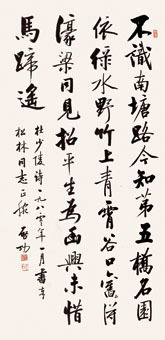 不識南塘路今知第五橋名園
依綠水野竹上青霄谷口舊相得
濠梁同見招平生為幽興未惜
馬蹄遙
杜少陵詩一九八〇年一月書奉
松林同志正腕 啟功